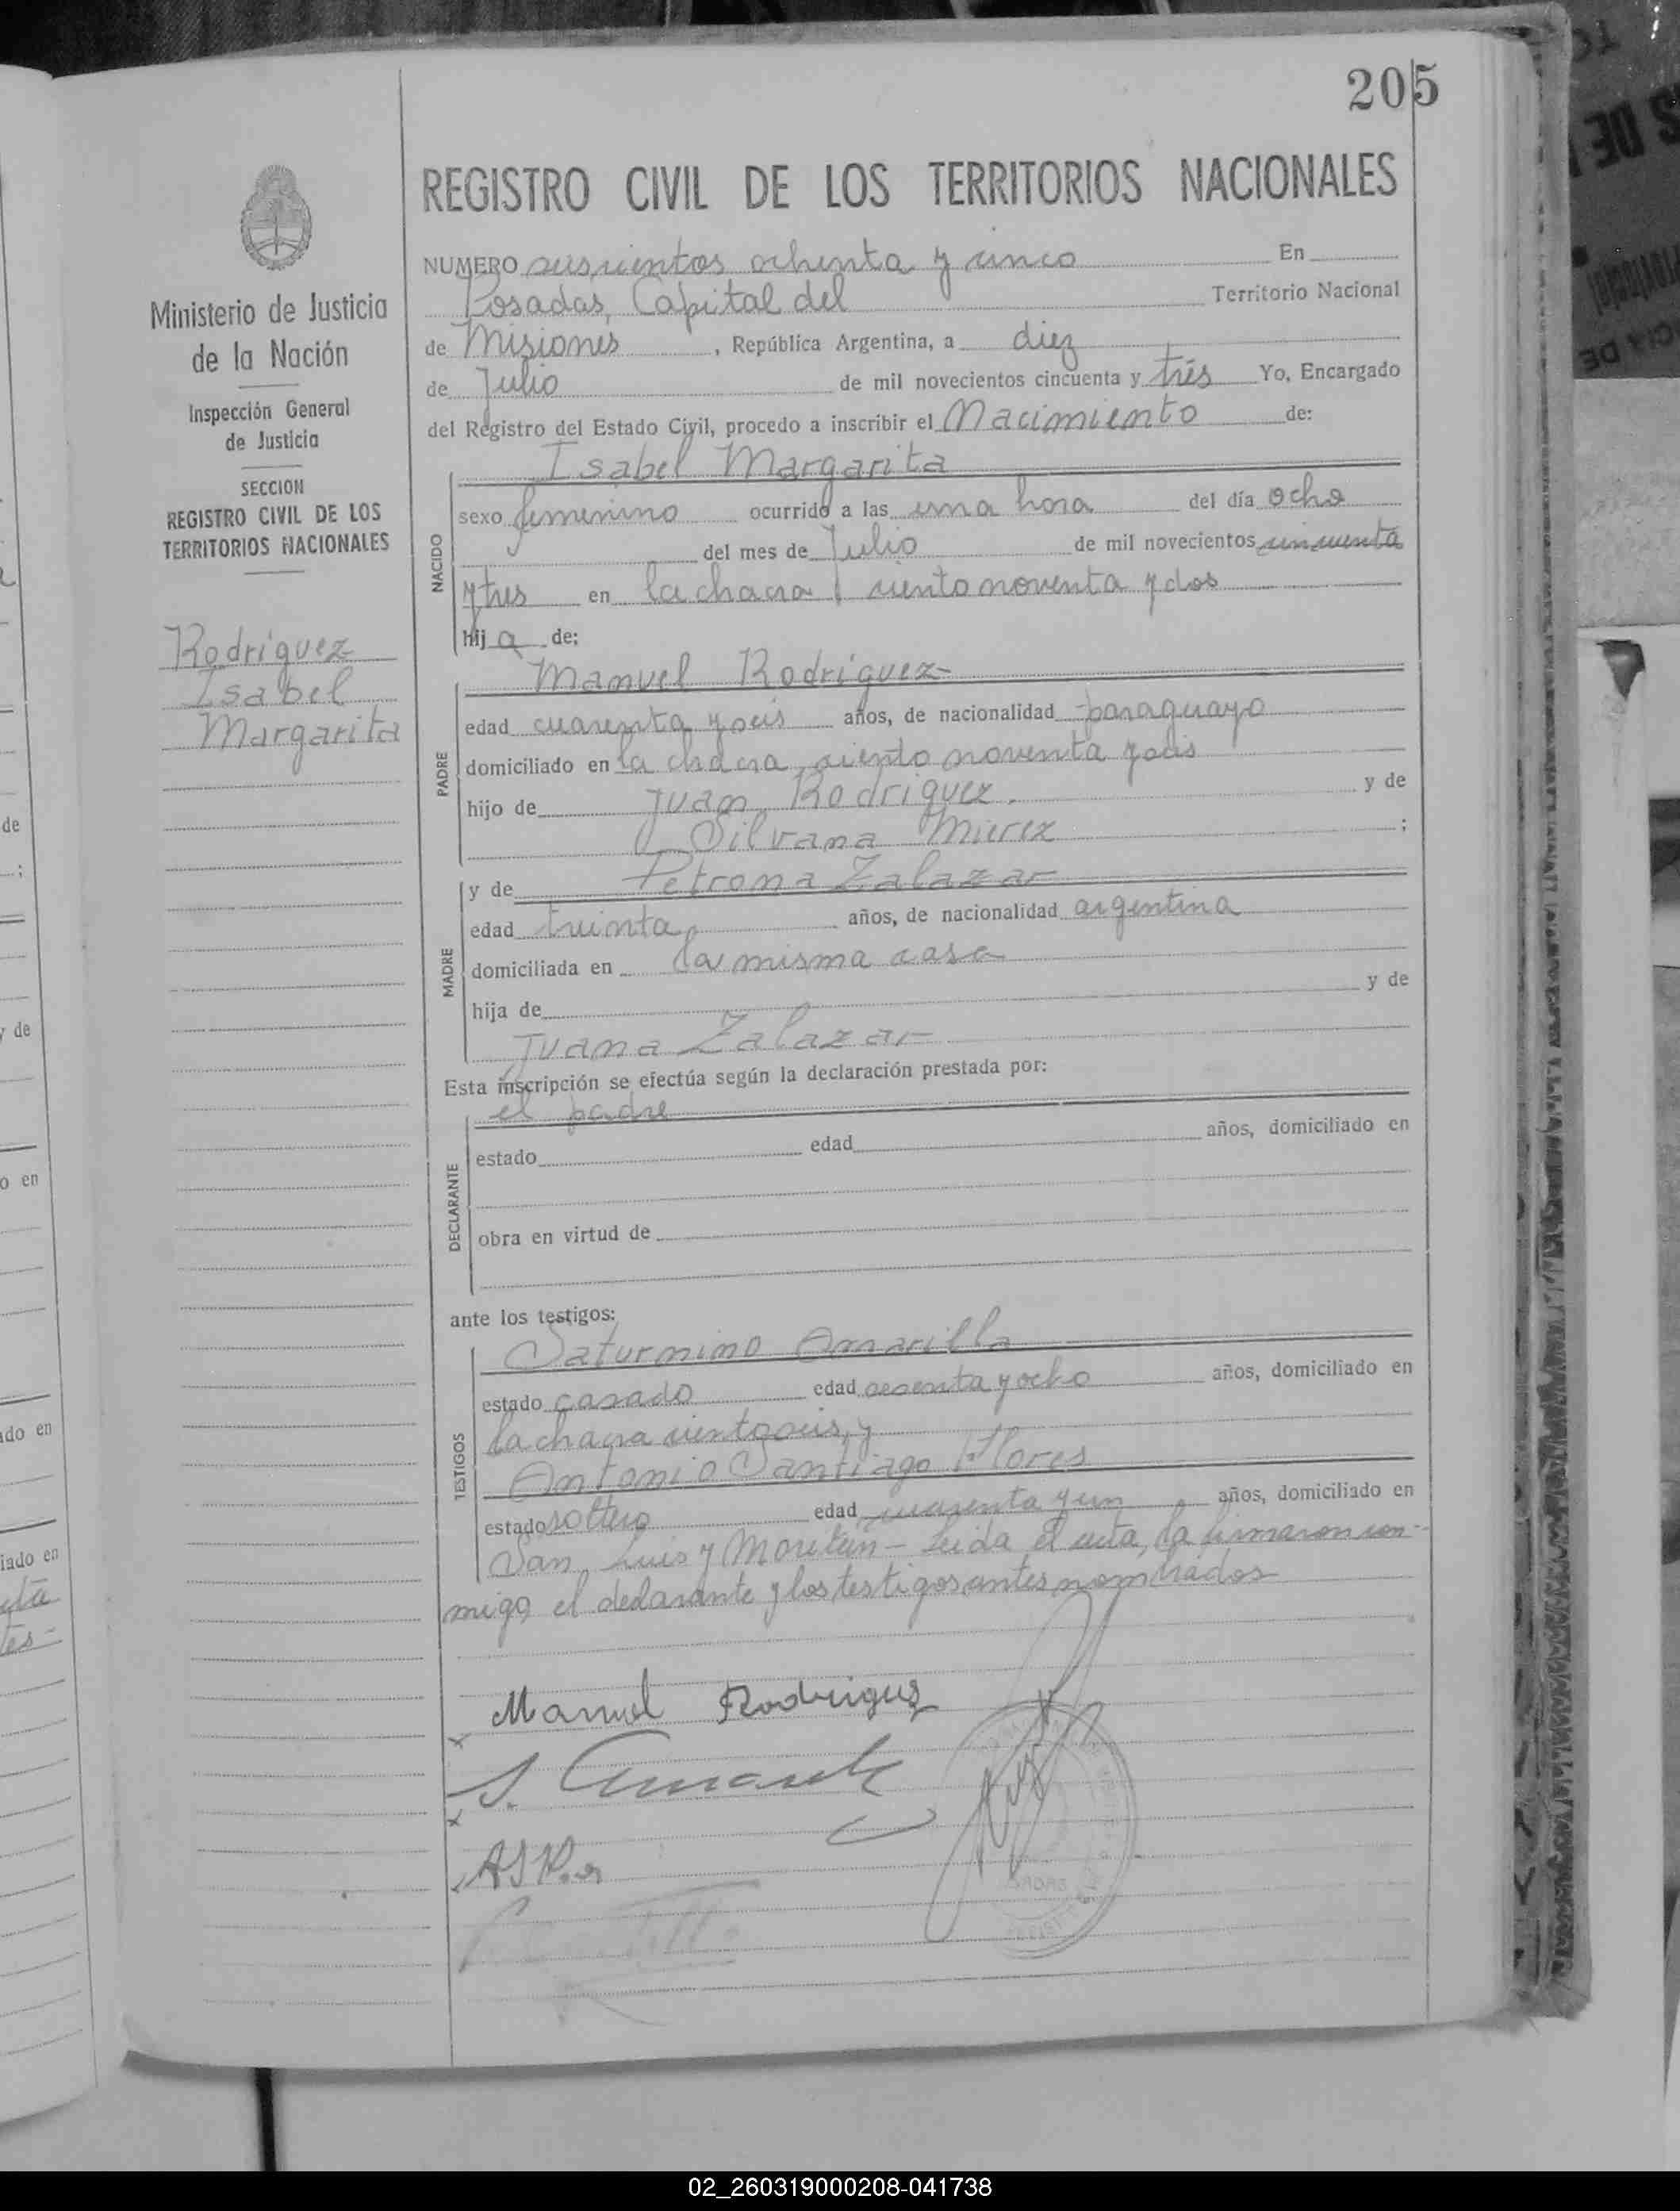 205
REGISTRO CIVIL DE LOS TERRITORIOS NACIONALES
Ministerio de Justicia
de la Nación
Inspección General
de Justicia
SECCION
REGISTRO CIVIL DE LOS
TERRITORIOS NACIONALES
Rodriguez
Isabel
Margarita
NUMERO seiscientos ochenta y cinco En
Posadas, Capital del Territorio Nacional
de Misiones, República Argentina, a diez
de Julio de mil novecientos cincuenta y trés Yo, Encargado
del Registro del Estado Civil, procedo a inscribir el Nacimiento de:
NACIDO
Isabel Margarita
sexo femenino ocurrido a las una hora del día ocho
del mes de Julio de mil novecientos cincuenta
y tres en la chacra ciento noventa y dos
hij a de:
PADRE
Manuel Rodriguez
edad cuarenta y seis años, de nacionalidad paraguayo
domiciliado en la chacra ciento noventa y
hijo de Juan Rodriguez. y de
Silvana Mierez ;
MADRE
y de Petrona Zalazar
edad treinta años, de nacionalidad argentina
domiciliada en la misma casa
hija de y de
Juana Zalazar
Esta inscripción se efectúa según la declaración prestada por:
DECLARANTE
el padre
estado edad años, domiciliado en
obra en virtud de
ante los testigos:
TESTIGOS
Saturnino Amarilla
estado casado edad sesenta y ocho años, domiciliado en
la chacra ciento seis, y
Antonio Santiago Flores
estado soltero edad cuarenta y un años, domiciliado en
San Luis y - Leida el acta, la firmaron con-
migo el declarante y los testigos antes nombrados
Manuel Rodriguez
S.
02_260319000208-041738